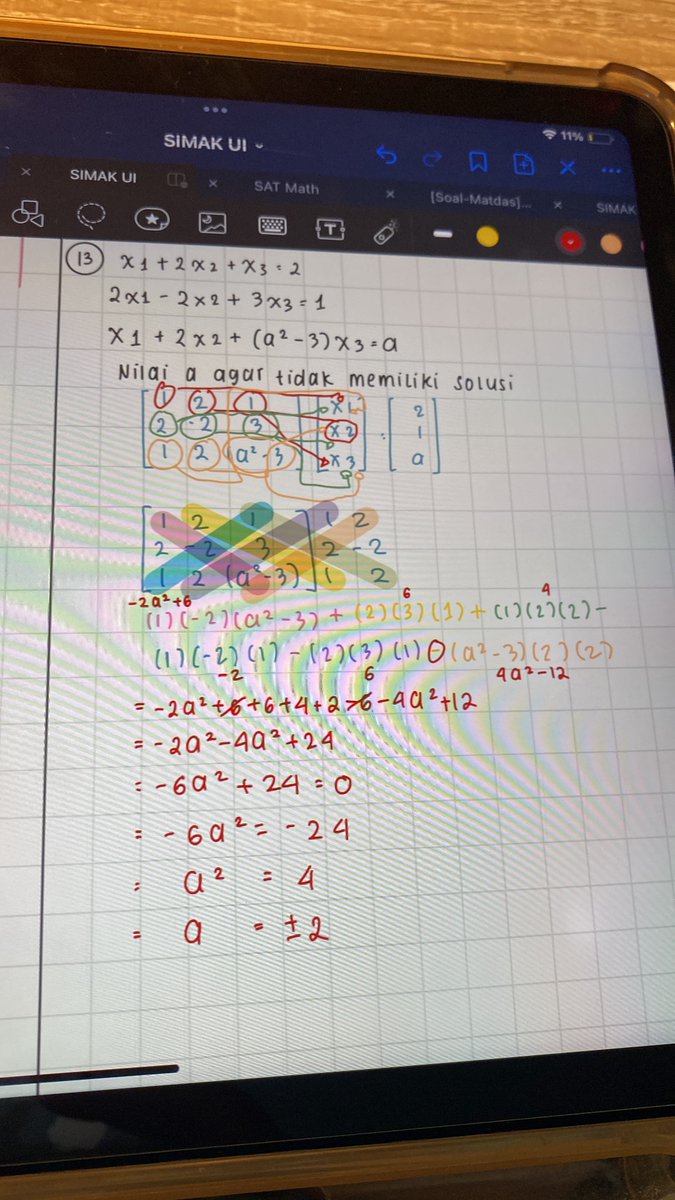 SIMAK UI
11%
SIMAK UI
SAT Math
[Soal-Matdas]...
SIMAK
13 x1 + 2x2 + x3 = 2
2x1 - 2x2 + 3x3 = 1
x1 + 2x2 + (a² - 3)x3 = a
Nilai a agar tidak memiliki solusi
1 2 1 x1 2
2 -2 3 x2 : 1
1 2 (a²-3) x3 a
1 2 1 1 2
2 -2 3 2 -2
1 2 (a²-3) 1 2
-2a²+6 6 4
(1)(-2)(a²-3) + (2)(3)(1) + (1)(2)(2) -
(1)(-2)(1) - (2)(3)(1) - (a²-3)(2)(2)
-2 6 4a²-12
= -2a²+6+6+4+2-6-4a²+12
= -2a²-4a²+24
= -6a² + 24 = 0
= -6a² = -24
= a² = 4
= a = ±2